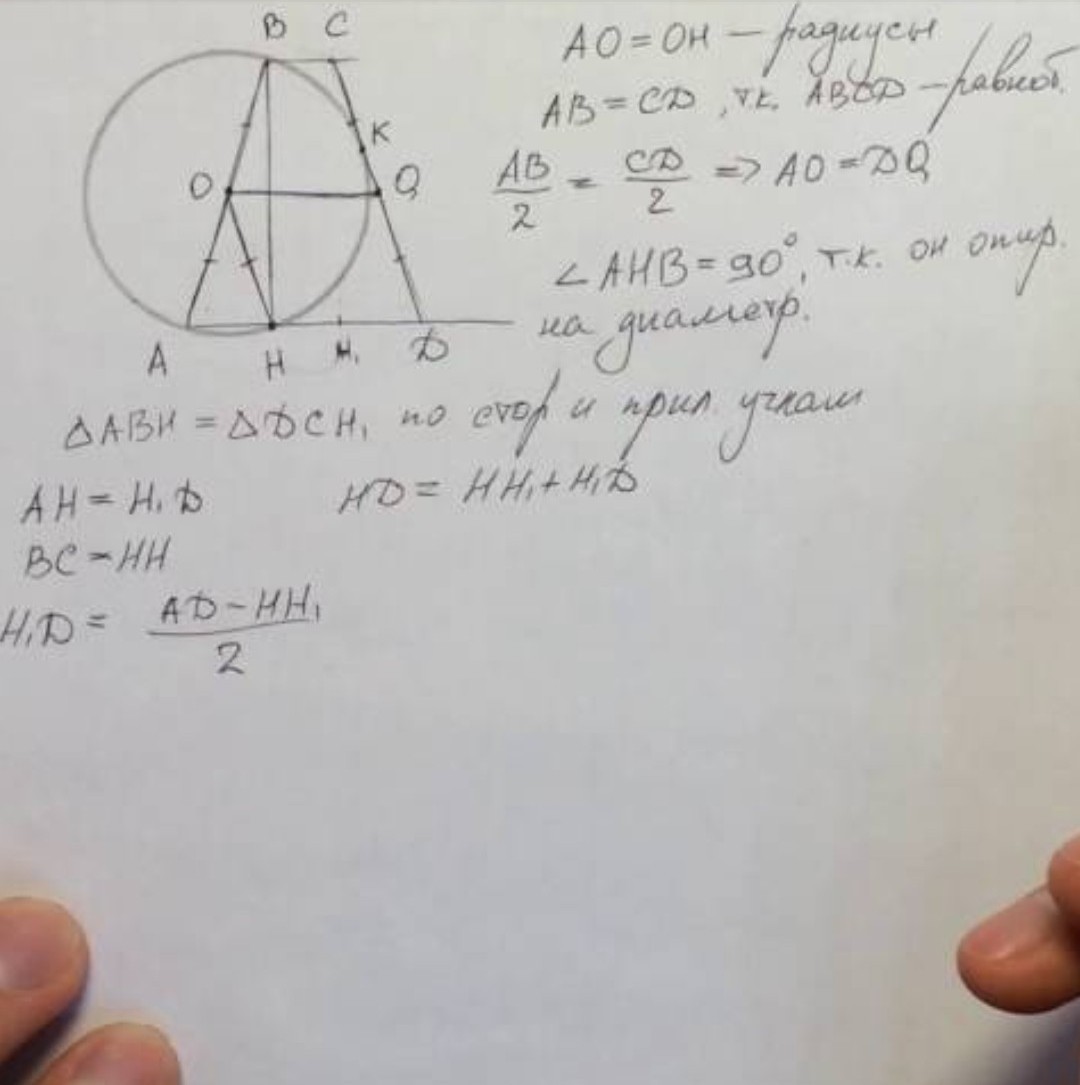 B C
K
O Q
A H H₁ D
AO = OH — радиусы
AB = CD, т.к. ABCD — равноб.
AB/2 = CD/2 => AO = DQ
∠AHB = 90°, т.к. он опир.
на диаметр.
△ABH = △DCH₁ по стор и прил. углам
AH = H₁D HD = HH₁ + H₁D
BC = HH
H₁D = AD − HH₁ / 2